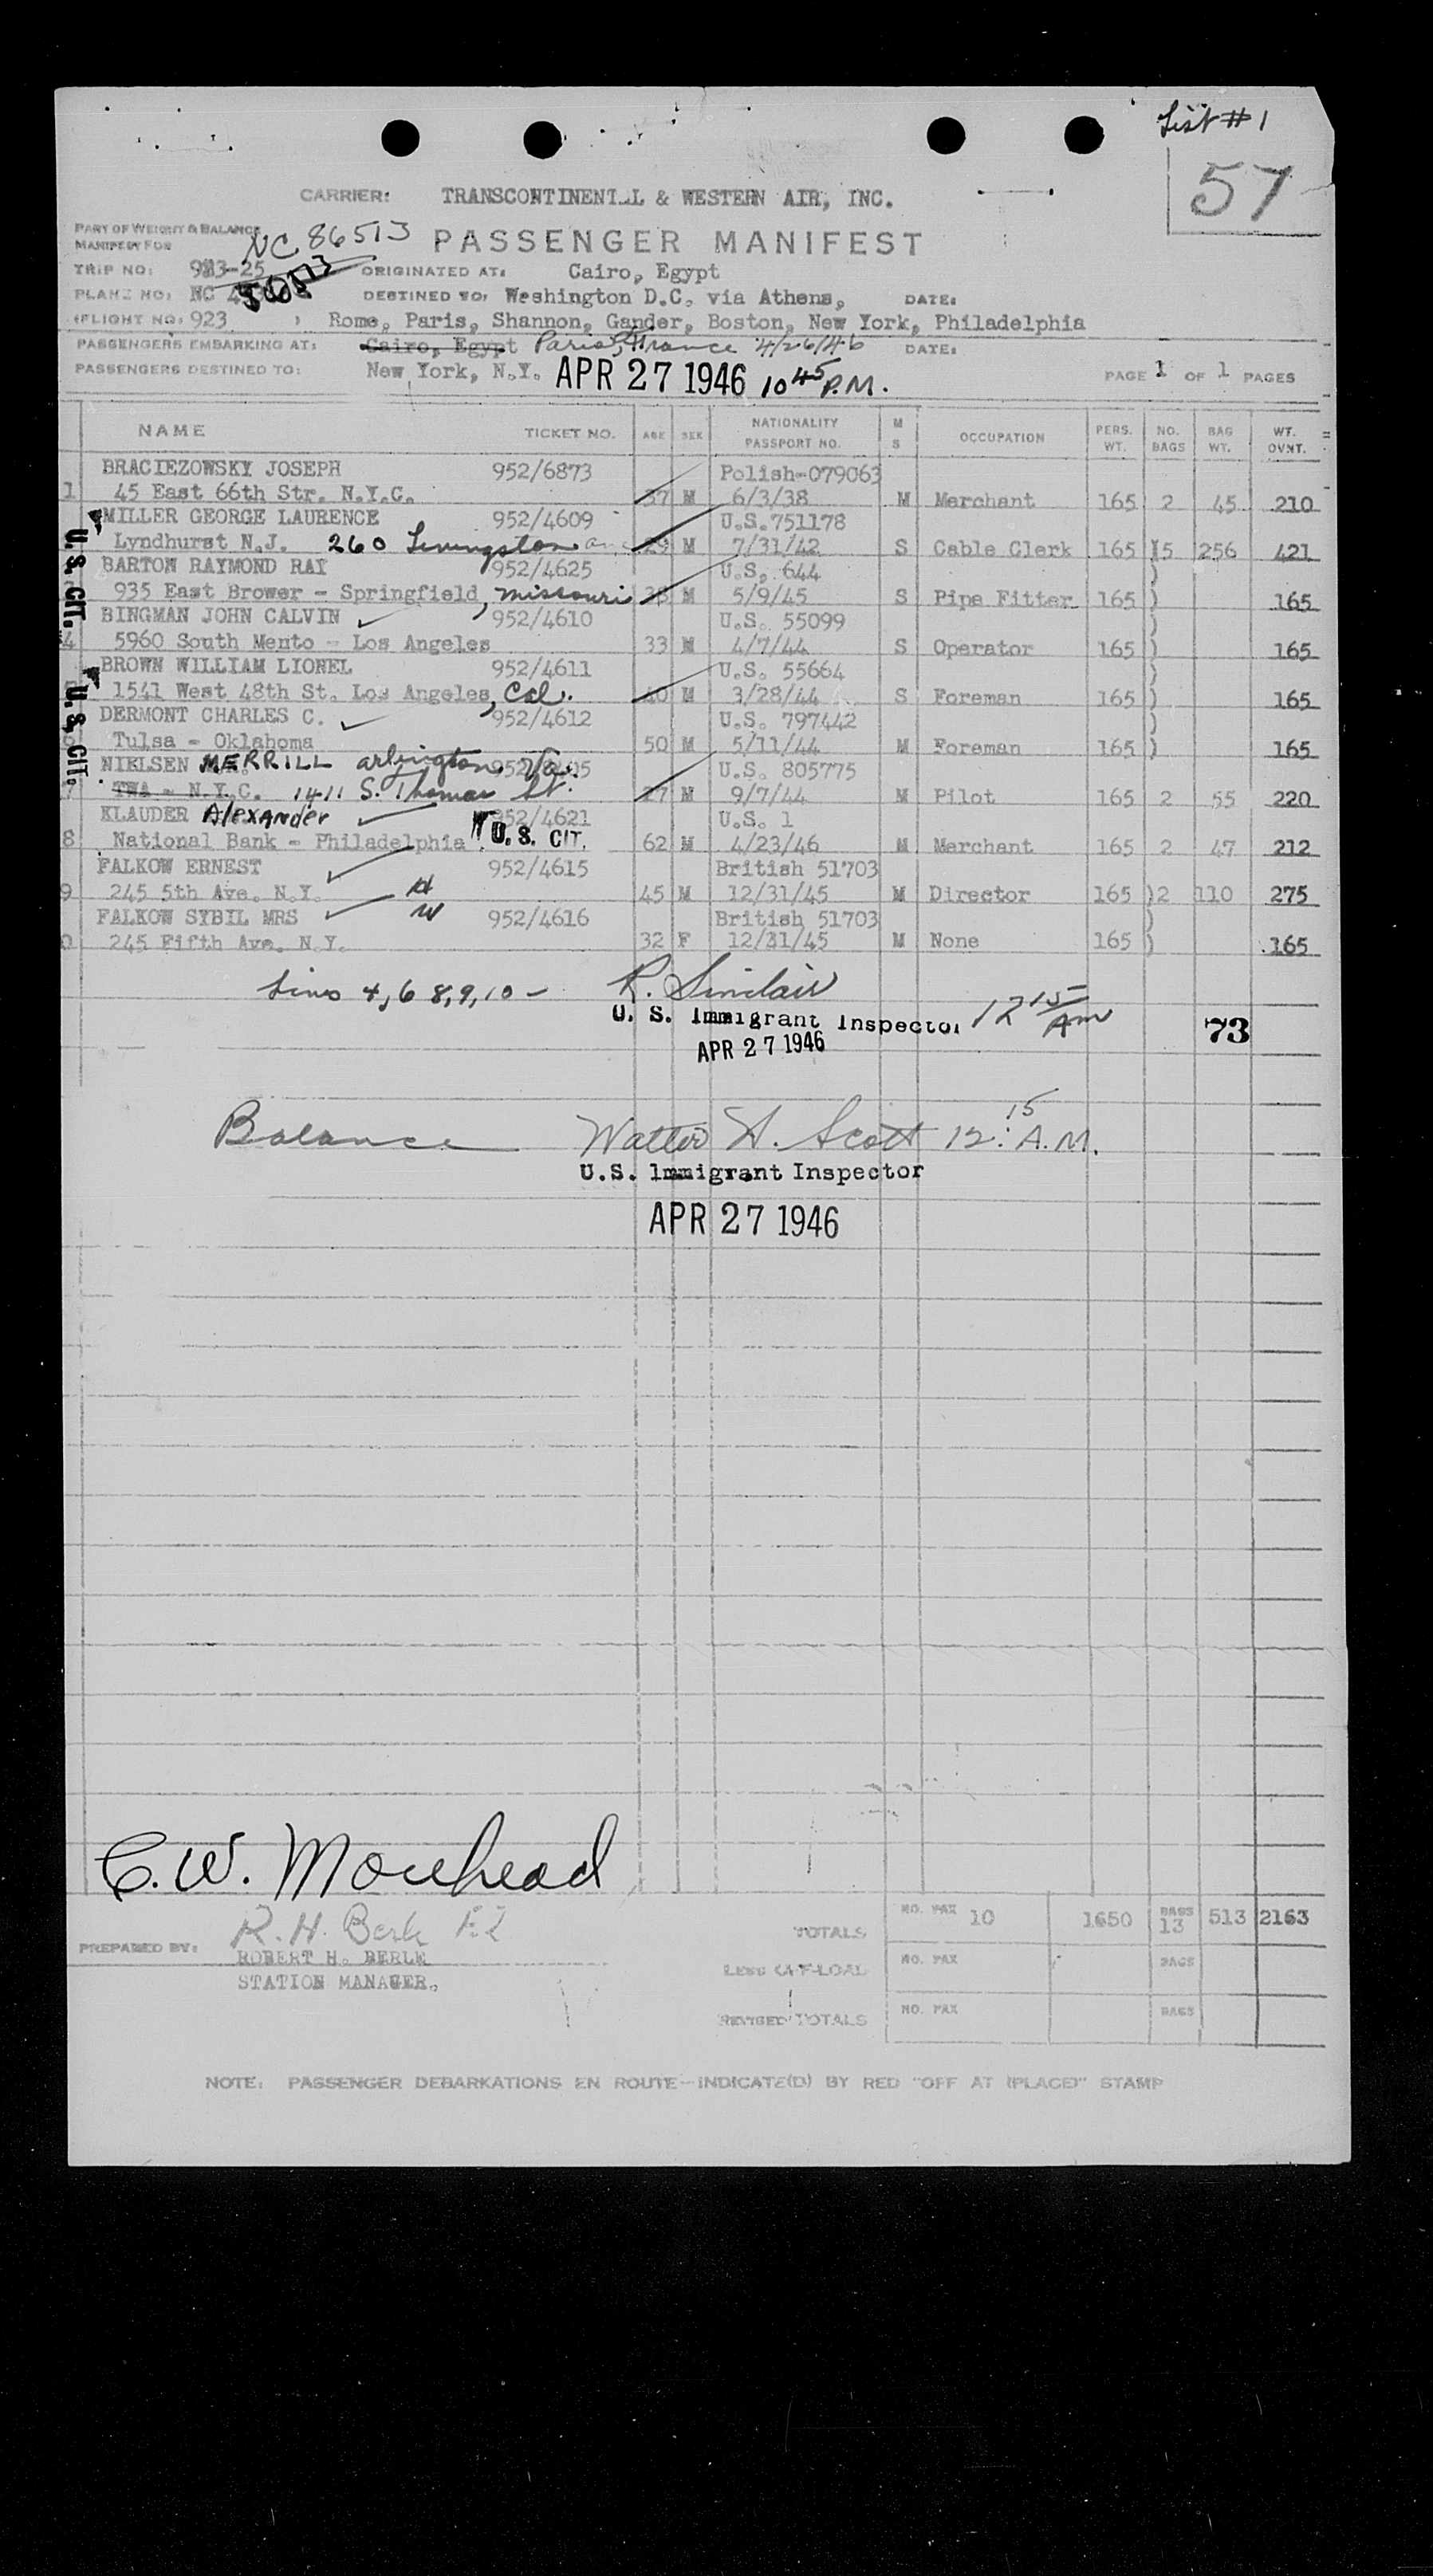 List #1
57
CARRIER: TRANSCONTINENT_L & WESTERN AIR, INC.
PART OF WEIGHT & BALANCE
MANIFEST FOR
NC 86513
PASSENGER MANIFEST
TRIP NO: 923-25 ORIGINATED AT: Cairo, Egypt
PLANE NO: NC 86513 DESTINED TO: Weshington D.C. via Athens, DATE:
(FLIGHT NO: 923 ) Rome, Paris, Shannon, Gander, Boston, New York, Philadelphia
PASSENGERS EMBARKING AT: Cairo, Egypt Paris, France 4/26/46 DATE:
PASSENGERS DESTINED TO: New York, N.Y. APR 27 1946 10 45 P.M. PAGE 1 OF 1 PAGES
NAME TICKET NO. AGE SEX NATIONALITY PASSPORT NO. M S OCCUPATION PERS. WT. NO. BAGS BAG WT. WT. OVNT.
BRACIEZOWSKY JOSEPH 952/6873 Polish-079063
1 45 East 66th Str. N.Y.C. 37 M 6/3/38 M Merchant 165 2 45 210
MILLER GEORGE LAURENCE 952/4609 U.S.751178
Lyndhurst N.J. 260 Livingston 29 M 7/31/42 S Cable Clerk 165 )5 256 421
U.S. CIT.
BARTON RAYMOND RAY 952/4625 U.S. 644
935 East Brower - Springfield, Missouri 38 M 5/9/45 S Pipe Fitter 165 ) 165
BINGMAN JOHN CALVIN 952/4610 U.S. 55099
4 5960 South Mento - Los Angeles 33 M 4/7/44 S Operator 165 ) 165
BROWN WILLIAM LIONEL 952/4611 U.S. 55664
1541 West 48th St. Los Angeles, Cal. 40 M 3/28/44 S Foreman 165 ) 165
U.S. CIT.
DERMONT CHARLES C. 952/4612 U.S. 797442
6 Tulsa - Oklahoma 50 M 5/11/44 M Foreman 165 ) 165
NIELSEN MERRILL Arlington, Va. U.S. 805775
7 TWA - N.Y.C. 1411 S. Thomas St. 27 M 9/7/44 M Pilot 165 2 55 220
KLAUDER Alexander 952/4621 U.S. 1
8 National Bank - Philadelphia U.S. CIT. 62 M 4/23/46 M Merchant 165 2 47 212
FALKOW ERNEST 952/4615 British 51703
9 245 5th Ave. N.Y. H 45 M 12/31/45 M Director 165 )2 110 275
FALKOW SYBIL MRS W 952/4616 British 51703
0 245 Fifth Ave. N.Y. 32 F 12/31/45 M None 165 ) 165
Lines 4, 6 8, 9, 10 - R. Sinclair
U. S. Immigrant Inspector 12 15 AM
APR 27 1946
73
Balance Walter H. Scott 12:15 A.M.
U.S. Immigrant Inspector
APR 27 1946
C.W. Morehead
TOTALS NO. PAX 10 1650 BAGS 13 513 2163
R. H. Berle
PREPARED BY: ROBERT H. BERLE
STATION MANAGER.
LESS OFF-LOAD NO. PAX BAGS
REVISED TOTALS NO. PAX BAGS
NOTE: PASSENGER DEBARKATIONS EN ROUTE-INDICATE(D) BY RED "OFF AT (PLACE)" STAMP